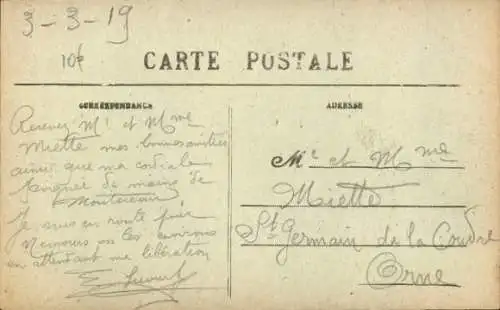 3-3-19
10f
CARTE POSTALE
CORRESPONDANCE
ADRESSE
Recevez Mr et Mme
Miette mes bonnes amitiés
ainsi que ma cordiale
poignée de mains de
Montereau
Je suis en route pour
Nemours ou les environs
en attendant ma libération
Mr et Mme
Miette
St Germain de la Coudre
Orne